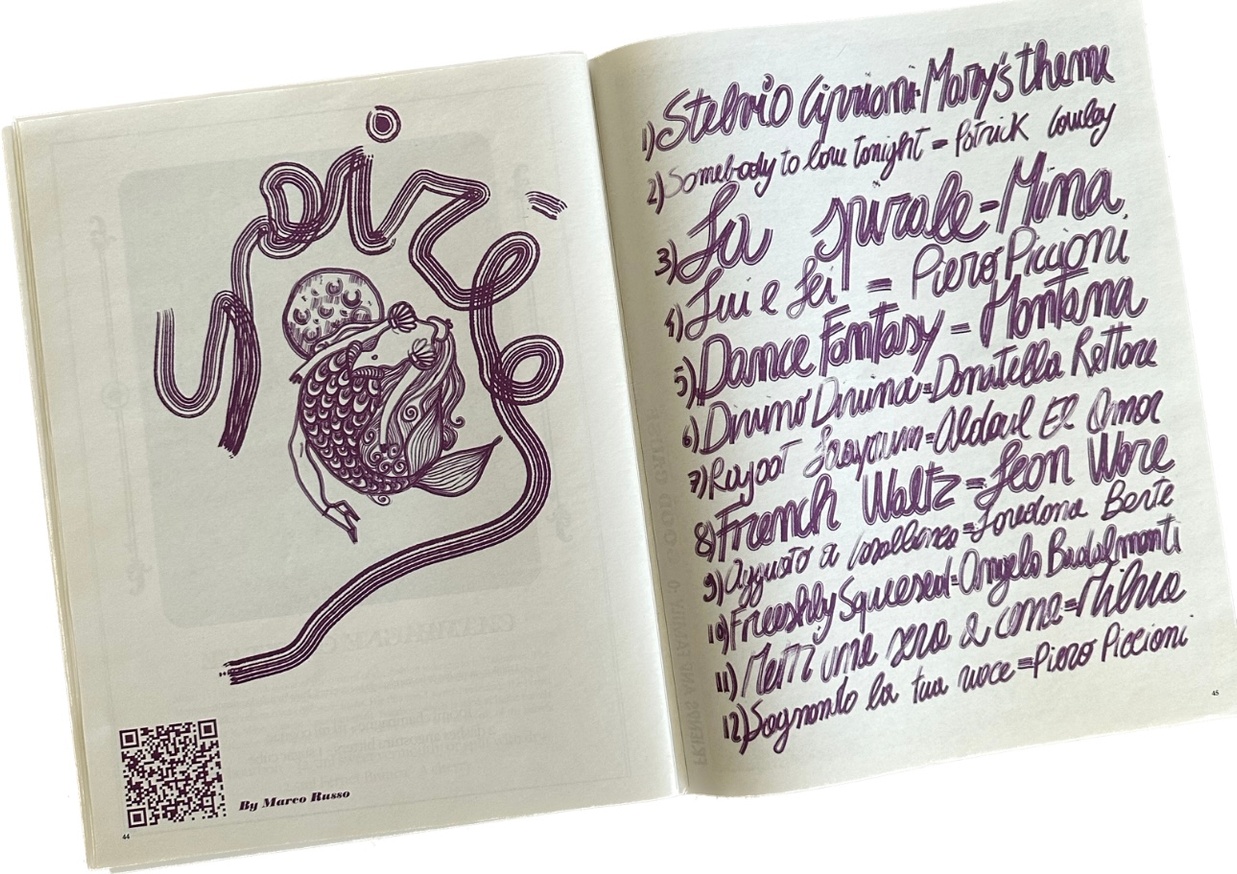 By Marco Russo
44
1) Stelvio Cipriani-Mary's theme
2) Somebody to love tonight = Patrick Cowley
3) La spirale = Mina
4) Lui e Lei = Piero Piccioni
5) Dance Fantasy = Montana
6) Divino Divina = Donatella Rettore
7) = El Omor
8) French Waltz = Leon Ware
9) a = Loredana Berte
10) = Angelo Badalmenti
11) Metti una sera a cena = Milva
12) Sognando la tua voce = Piero Piccioni
45